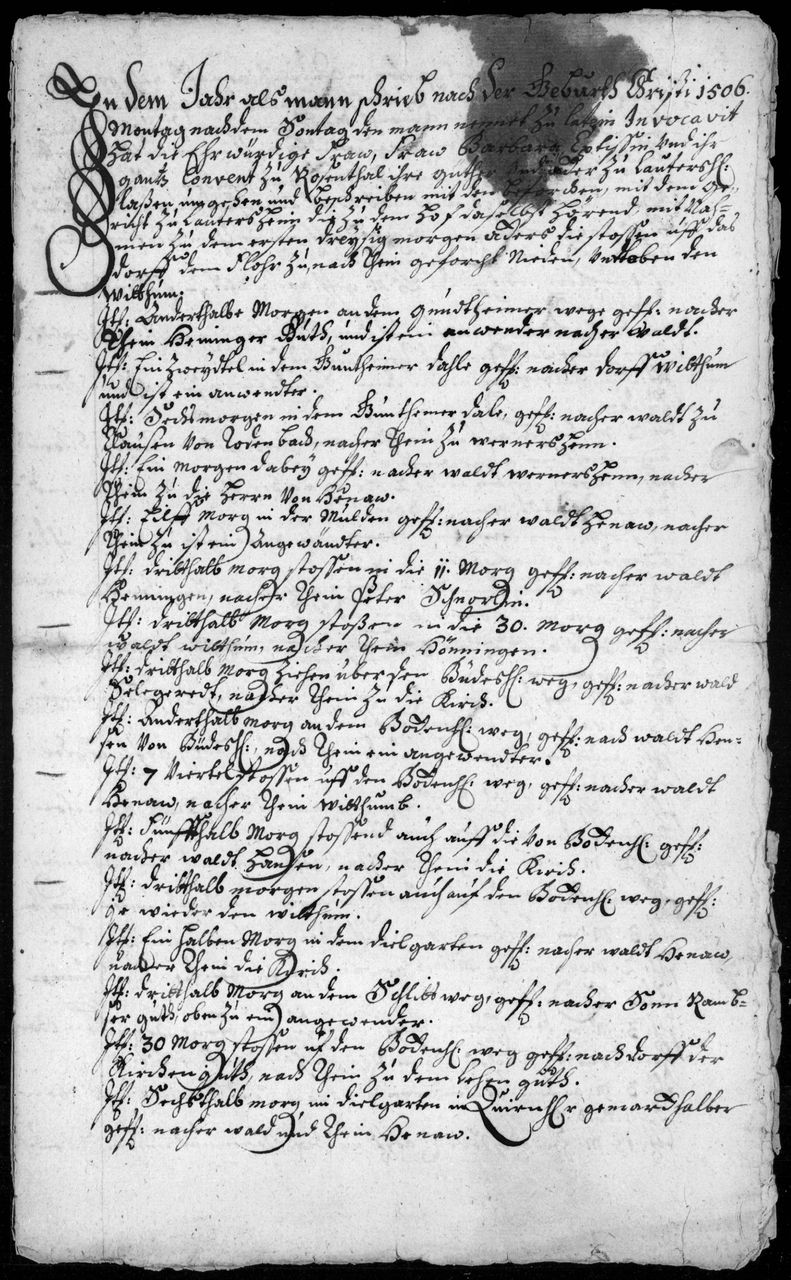 In dem Jahr als mann schrieb nach der Geburth Christi 1506.
Montag nach dem Sontag den mann nennet zu latein Invocavit
Hat die Ehrwürdige Fraw, Fraw Barbara Eptissin und ihr
gantz Convent zu Rosenthal ihre güther und äcker zu Lautersh:
laßen umgehen und beschreiben mit den geforchen, mit dem Ge-
richt zu Lautersheim die zu dem Hof daselbst hörend, mit Nah-
men zu dem ersten dreysig morgen ackers die stossen uff das
dorff dem Flohr zu, nach Rhein geforcht Nieden, und oben den
Witthum.
Itt: Anderthalbe Morgen an dem gundtheimer wege geff: nacher
Rhein Heninger Guth, und ist ein anwender nacher waldt.
Itt: Ein zweydtel in dem Guntheimer dahle geff: nacher dorff witthum
und ist ein anwendter.
Itt: Sechs morgen in dem Gunthemer dale, geff: nacher waldt zu
Clausen von Rodenbach, nacher Rhein zu wernersheim.
Itt: Ein morgen dabey geff: nacher waldt wernersheim, nacher
Rhein zu die Herrn von Henaw.
Itt: Eilff Morg in der Mulden geff: nacher waldt Henaw, nacher
Rhein zu ist ein Angewändter.
Itt: dritthalb morg stossen in die 11. Morg geff: nacher waldt
Henningen, nacher Rhein Peter Schnorlin.
Itt: dritthalb Morg stoßen in die 30. Morg geff: nacher
waldt witthum, nacher Rhein Hönningen.
Itt: dritthalb Morg ziehen über den Büdesh: weg, geff: nacher wald
Selegeredt, nacher Rhein zu die Kirch.
Itt: Anderthalb morg an dem Bodenh: weg, geff: nach waldt Hen-
sen von Büdesh:, nach Rhein ein angewendter.
Itt: 7 Viertel stossen uff den Bodenh: weg, geff: nacher waldt
Henaw, nacher Rhein witthumb.
Itt: Fünffthalb Morg stossend auch auff die von Bodenh: geff:
nacher waldt Hansen, nacher Rhein die Kirch.
Itt: dritthalb morgen stossen auch auf den Bodenh: weg, geff:
wieder den witthum.
Itt: Ein halben Morg in dem dielgarten geff: nacher waldt Henaw,
nacher Rhein die Kirch.
Itt: dritthalb Morg an dem Schlitt weg, geff: nacher Sonn Ramb-
ser guth, oben zu ein angewender.
Itt: 30 Morg stossen uf den Bodenh: weg geff: nach dorff der
Kirchen guth, nach Rhein zu dem Lehen guth.
Itt: Sechsthalb morg im dielgarten in Quirnh:r gemarck halber
geff: nacher wald und Rhein Henaw.